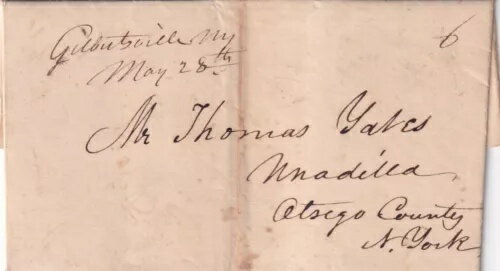 Gilbertsville Ny
May 28th
6
Mr Thomas Yates
Unadilla
Otsego County
N. York